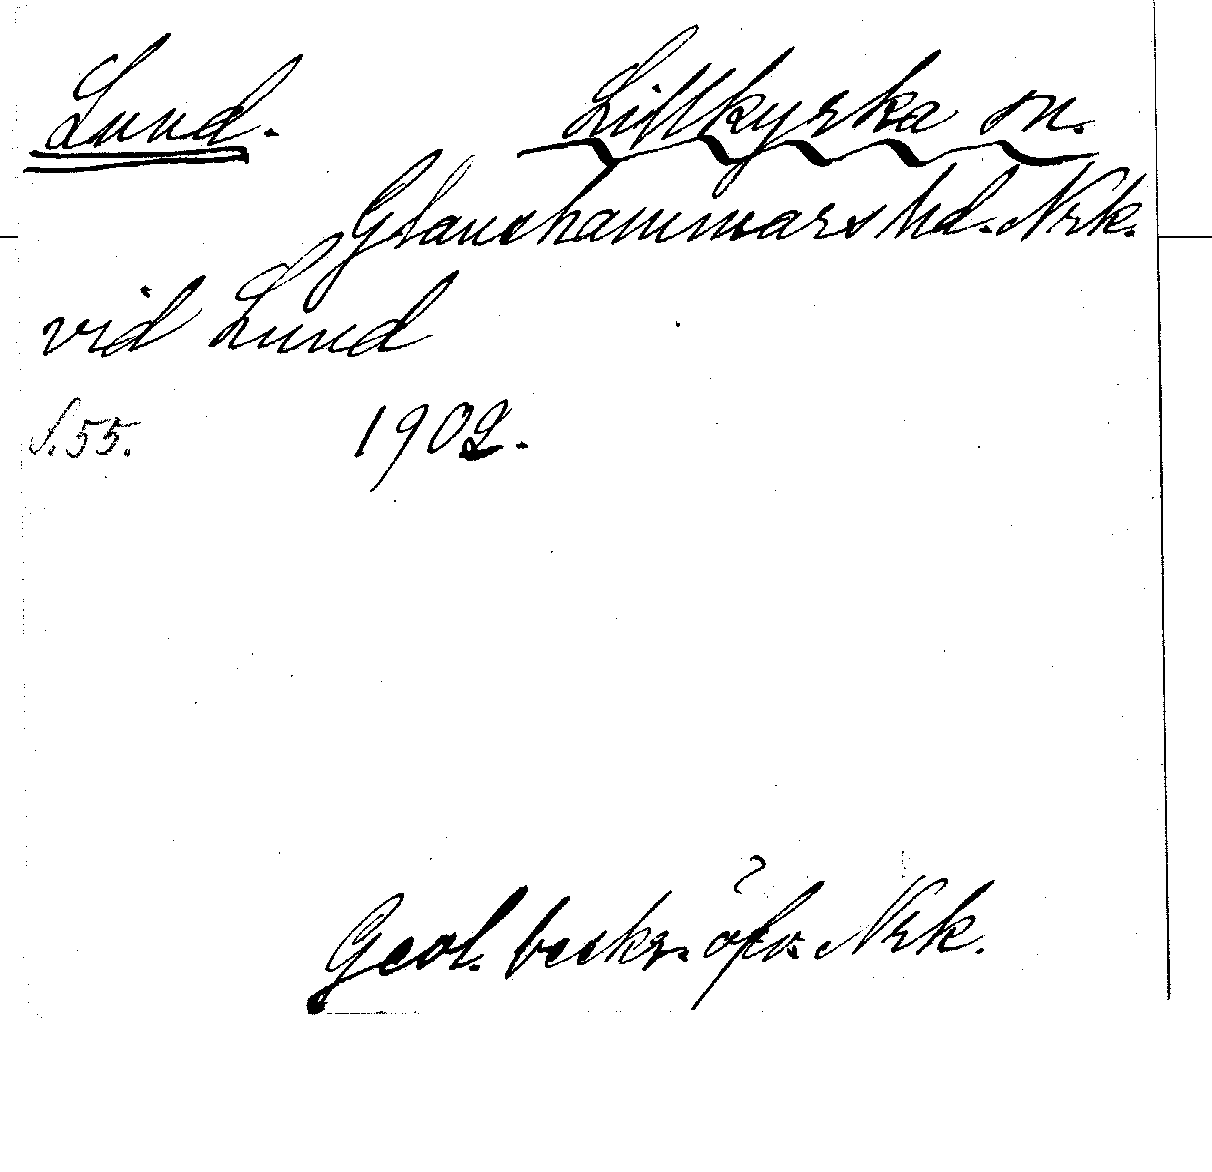 Lund. Lillkyrka sn.
Glanshammars hd. Nrk.
vid Lund
S. 55. 1902.
Geol. beskr. öfv. Nrk.